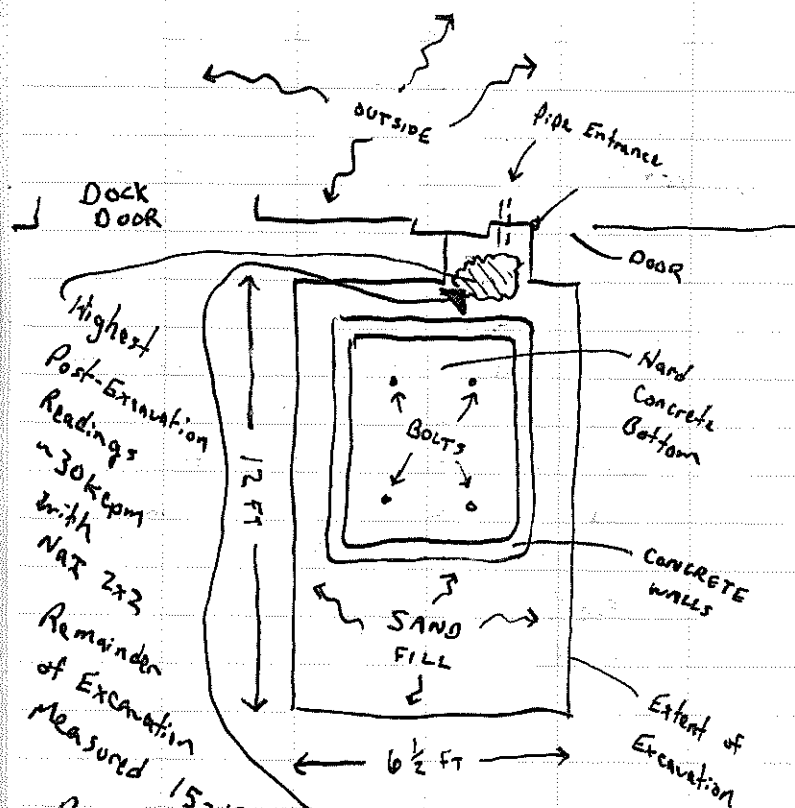 OUTSIDE
Pipe Entrance
DOCK
DOOR
DOOR
Highest
Post-Excavation
Readings
~30kcpm
with
NaI 2x2
Remainder
of Excavation
Measured
12 FT
BOLTS
Hard
Concrete
Bottom
CONCRETE
WALLS
SAND
FILL
6 1/2 FT
Extent of
Excavation